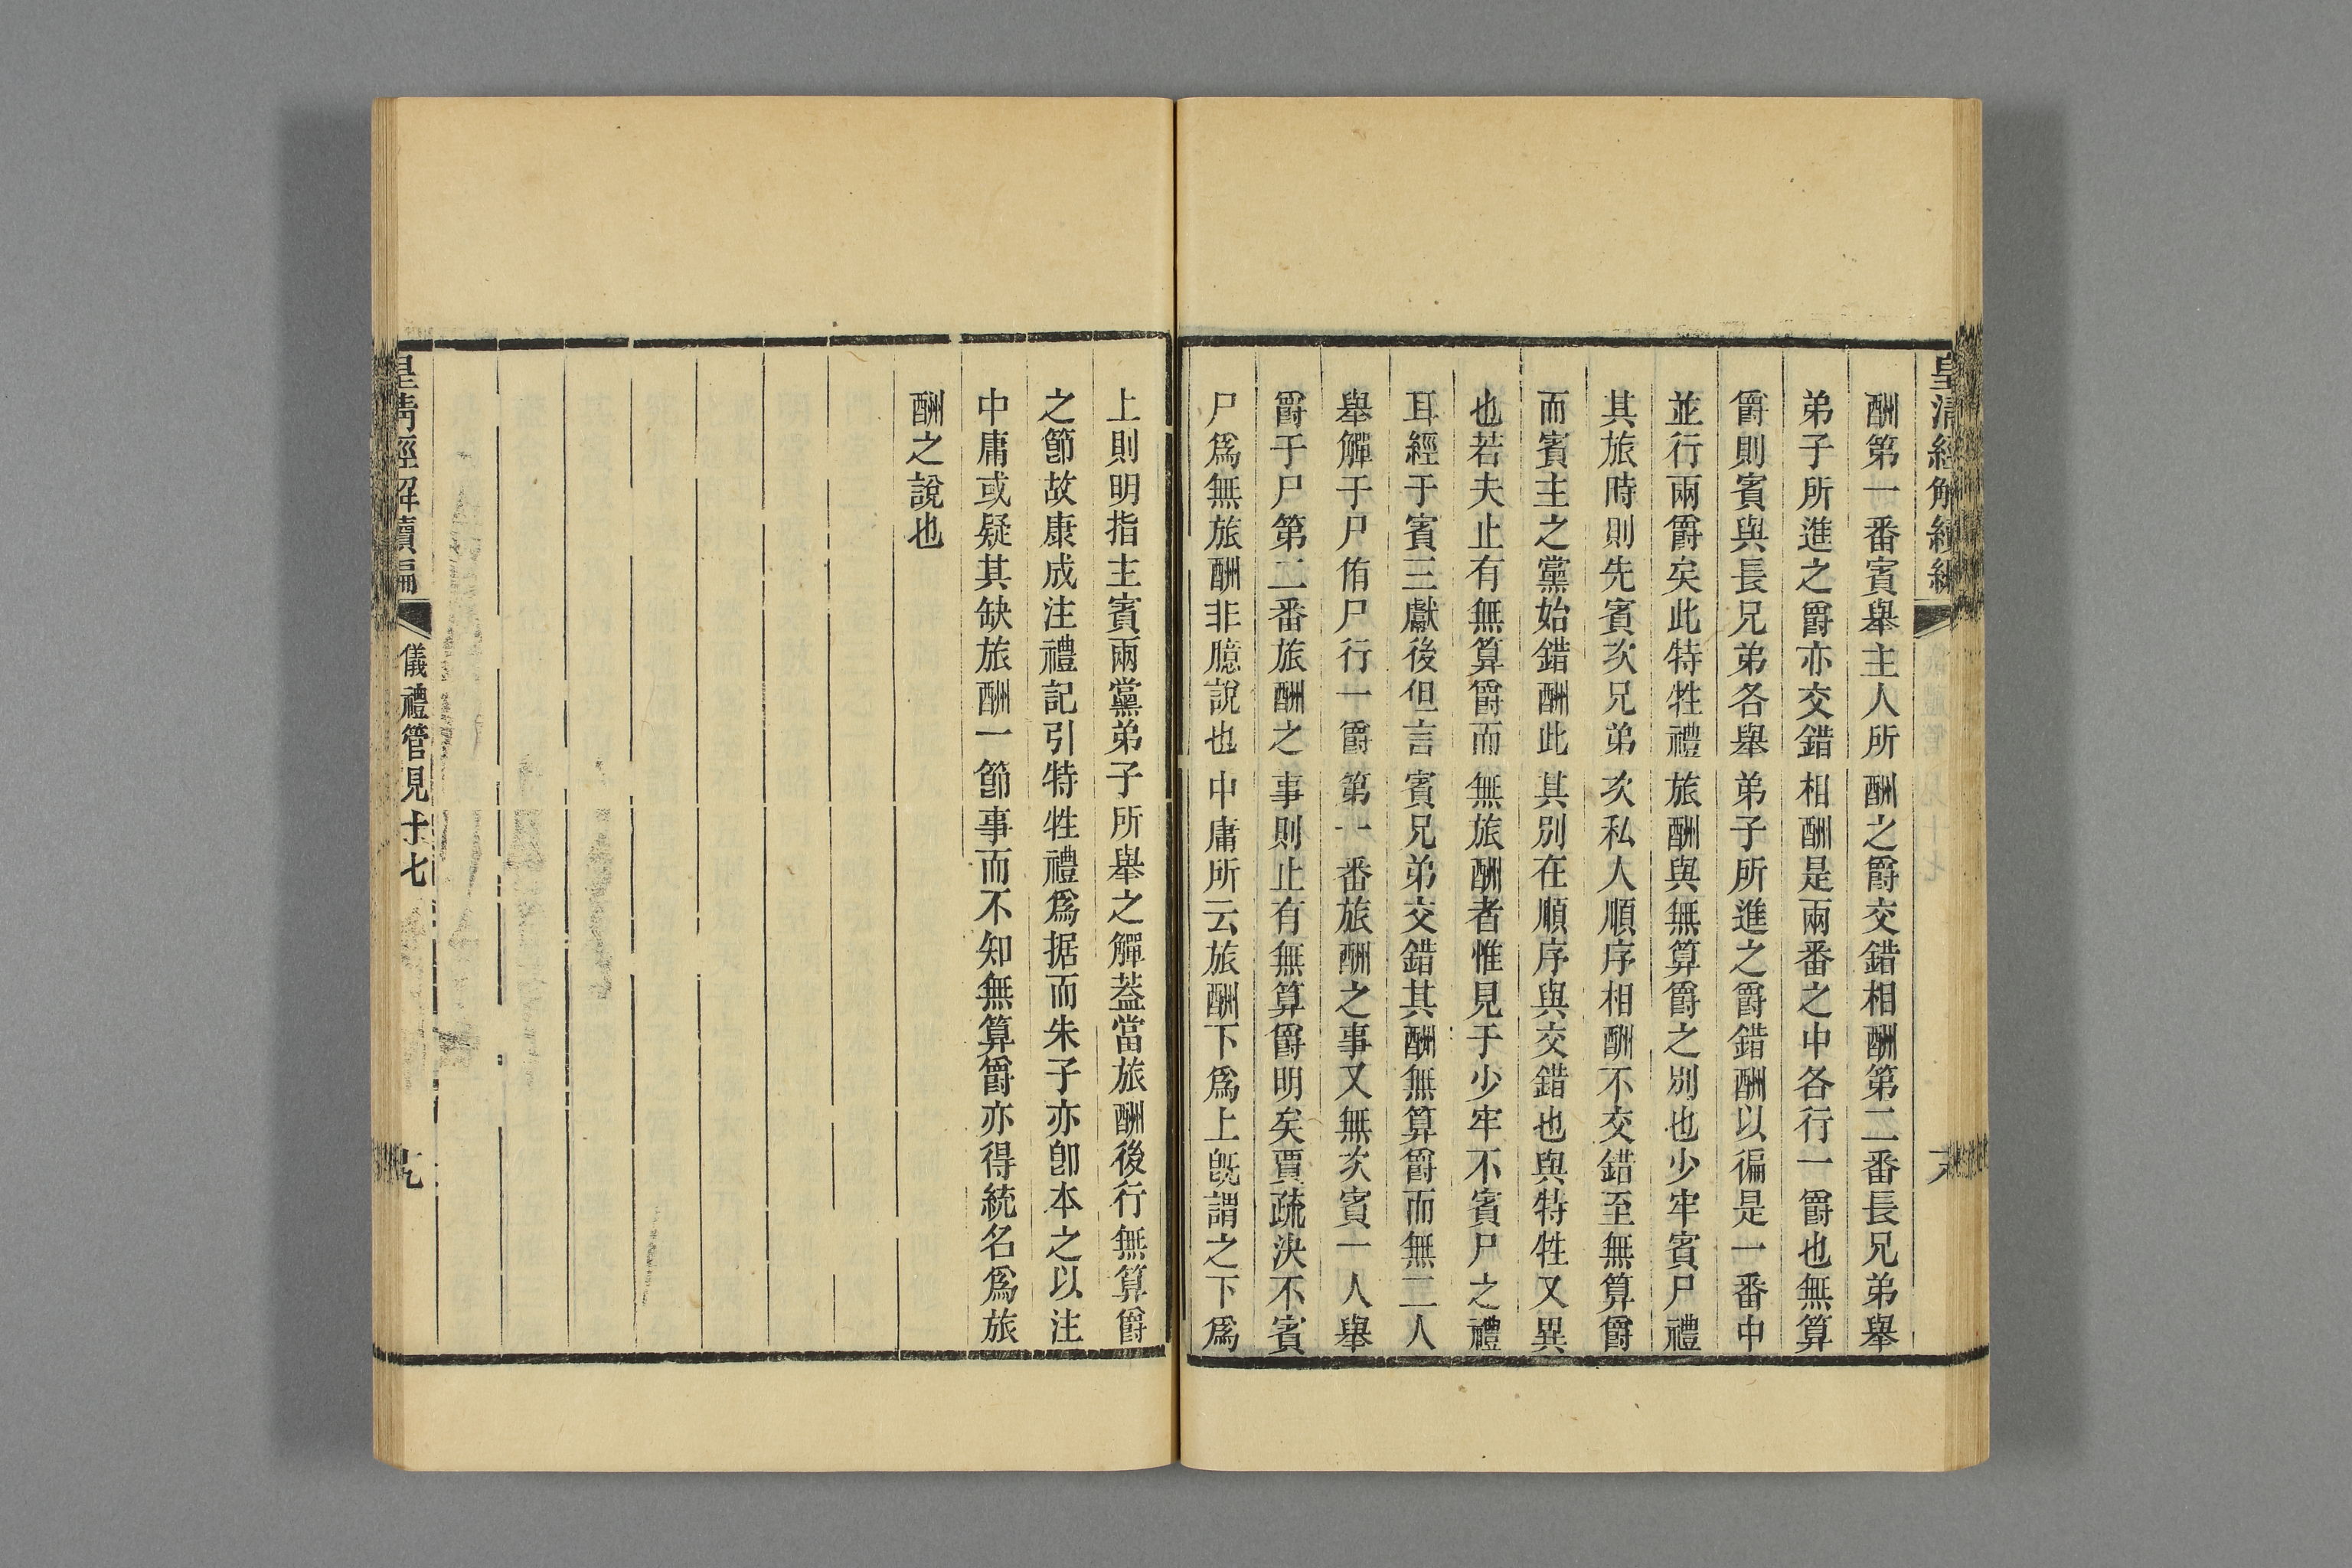 皇清經解續編
酬第一番賓舉主人所酬之爵交錯相酬第二番長兄弟舉
弟子所進之爵亦交錯相酬是兩番之中各行一爵也無算
爵則賓與長兄弟各舉弟子所進之爵錯酬以徧是一番中
並行兩爵矣此特牲禮旅酬與無算爵之別也少牢賓尸禮
其旅時則先賓次兄弟次私人順序相酬不交錯至無算爵
而賓主之黨始錯酬此其別在順序與交錯也與特牲又異
也若夫止有無算爵而無旅酬者惟見于少牢不賓尸之禮
耳經于賓三獻後但言賓兄弟交錯其酬無算爵而無二人
舉觶于尸侑尸行一爵第一番旅酬之事又無次賓一人舉
爵于尸第二番旅酬之事則止有無算爵明矣賈疏決不賓
尸爲無旅酬非臆說也中庸所云旅酬下爲上旣謂之下爲
上則明指主賓兩黨弟子所舉之觶葢當旅酬後行無算爵
之節故康成注禮記引特牲禮爲据而朱子亦卽本之以注
中庸或疑其缺旅酬一節事而不知無算爵亦得統名爲旅
酬之說也
皇清經解續編
儀禮管見十七
九